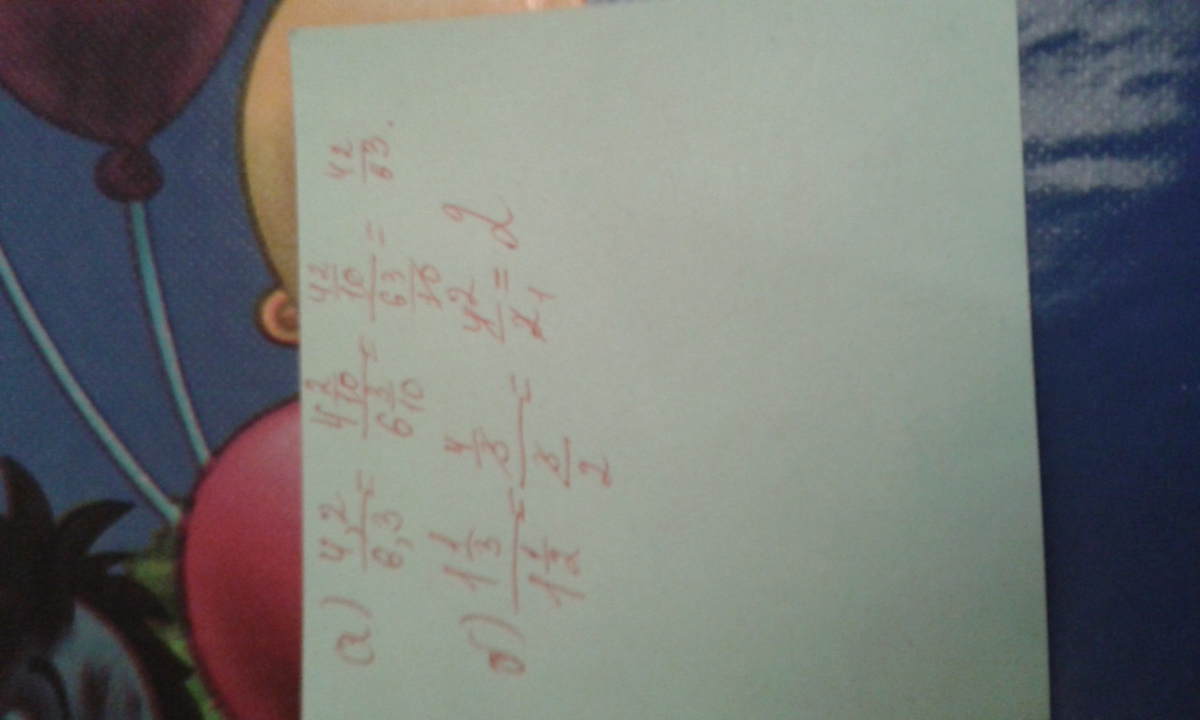 а) 4,2/6,3 = 4 2/10 / 6 3/10 = 42/10 / 63/10 = 42/63.
б) 1 1/3 / 1 1/2 = 4/3 / 3/2 = 4 2/2 1 = 2